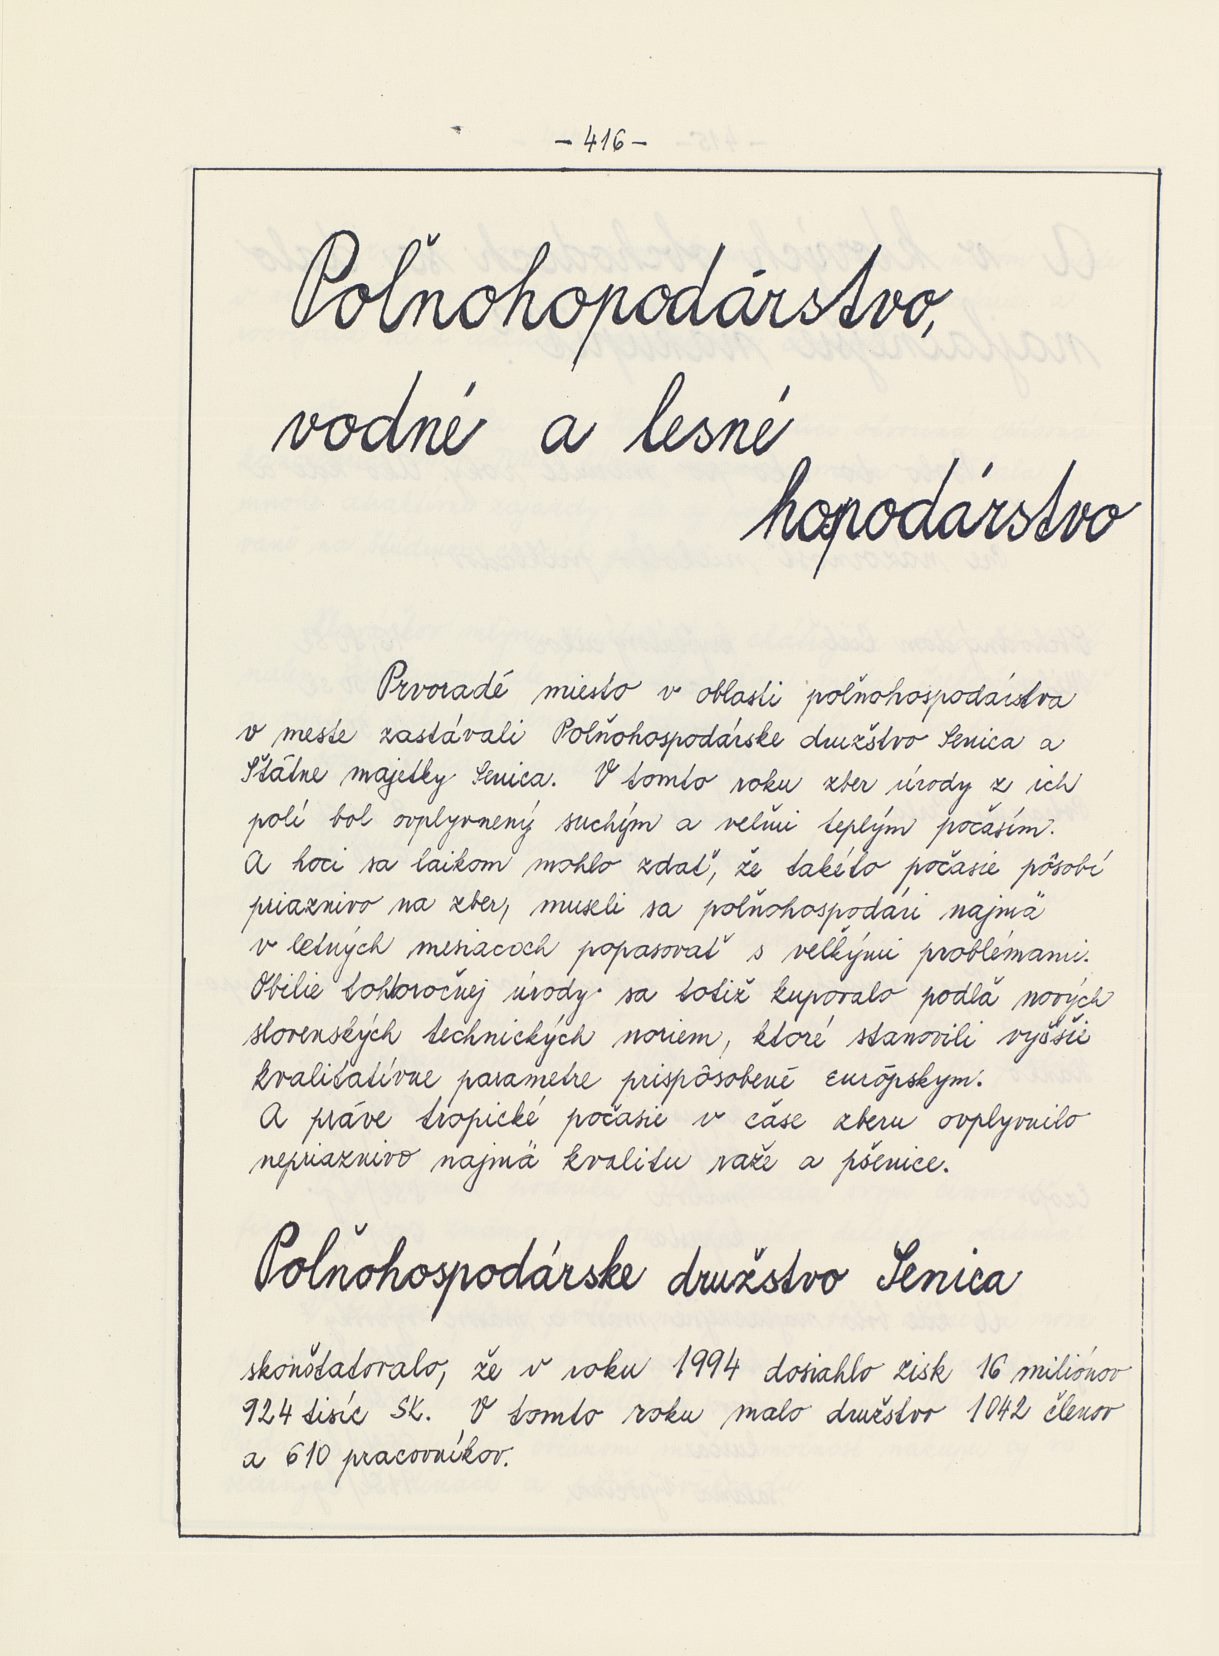 - 416 -
Poľnohopodárstvo,
vodné a lesné
hopodárstvo
Prvoradé miesto v oblasti poľnohospodárstva
v meste zastávali Poľnohospodárske družstvo Senica a
Štátne majetky Senica. V tomto roku zber úrody z ich
polí bol ovplyvnený suchým a veľmi teplým počasím.
A hoci sa laikom mohlo zdať, že takéto počasie pôsobí
priaznivo na zber, museli sa poľnohospodári najmä
v letných mesiacoch popasovať s veľkými problémami.
Obilie tohtoročnej úrody sa totiž kupovalo podľa nových
slovenských technických noriem, ktoré stanovili vyššie
kvalitatívne parametre prispôsobené európskym.
A práve tropické počasie v čase zberu ovplyvnilo
nepriaznivo najmä kvalitu raže a pšenice.
Poľnohospodárske družstvo Senica
skonštatovalo, že v roku 1994 dosiahlo zisk 16 miliónov
924 tisíc SK. V tomto roku malo družstvo 1042 členov
a 610 pracovníkov.